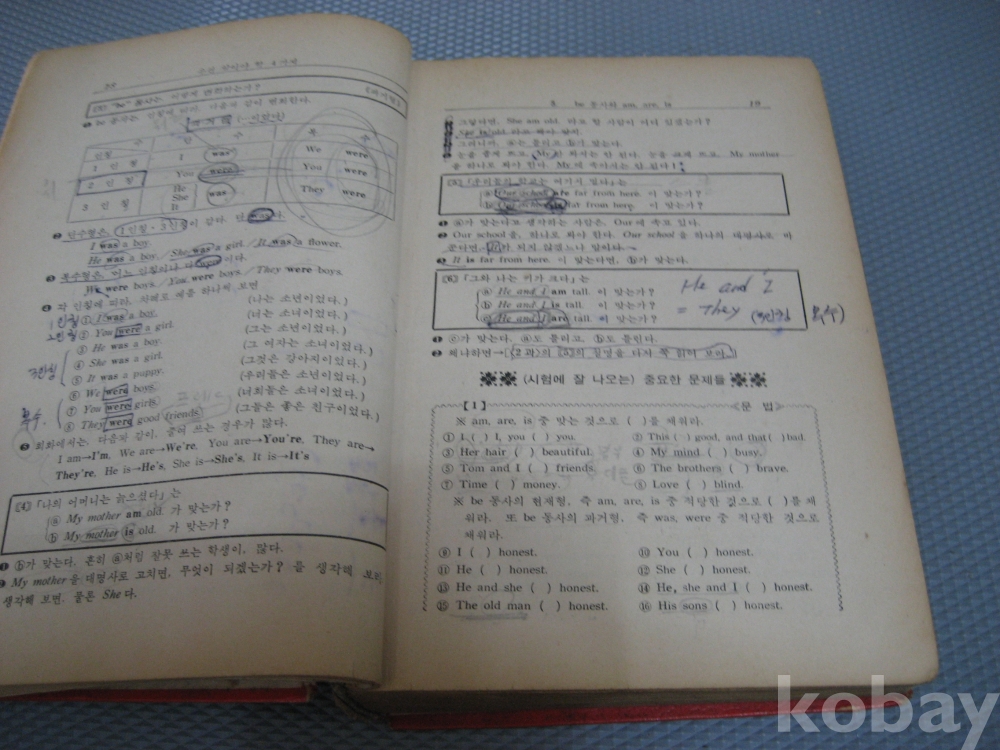 【3】 "be" 동사는 어떻게 변화하는가?
❶ be 동사는 인칭에 따라, 다음과 같이 변화한다.
수 단 수 복 수
인칭
1 인 칭 I was We were
2 인 칭 You were You were
3 인 칭 He She It was They were
❷ 단수형은, 1인칭·3인칭이 같아. 단 was다.
I was a boy. She was a girl. It was a flower.
He was a boy.
❸ 복수형은, 어느 인칭이나 다 were이다.
We were boys. You were boys. / They were boys.
❹ 각 인칭에 따라, 차례로 예를 하나씩 보면
1인칭 ① I was a boy. (나는 소년이었다.)
2인칭 ② You were a girl. (너는 소녀이었다.)
③ He was a boy. (그는 소년이었다.)
3인칭 ④ She was a girl. (그 여자는 소녀이었다.)
⑤ It was a puppy. (그것은 강아지이었다.)
⑥ We were boys. (우리들은 소년이었다.)
복수 ⑦ You were girls. (너희들은 소녀이었다.)
⑧ They were good friends. (그들은 좋은 친구이었다.)
❺ 회화에서는, 다음과 같이, 줄여 쓰는 경우가 많다.
I am→I'm. We are→We're. You are→You're. They are→
They're. He is→He's. She is→She's. It is→It's
【4】 「나의 어머니는 늙으셨다」는
ⓐ My mother am old. 가 맞는가?
ⓑ My mother is old. 가 맞는가?
❶ ⓑ가 맞는다. 흔히 ⓐ처럼 잘못 쓰는 학생이, 많다.
❷ My mother을 대명사로 고치면, 무엇이 되겠는가? 를 생각해 보라.
생각해 보면. 물론 She다.
3. be 동사와 am, are, is 19
그렇다면, She am old. 라고 할 사람이 어디 있겠는가?
She is old. 라고 해야 맞지.
그러니까, ⓐ는 틀리고 ⓑ가 맞는다.
눈을 좁게 뜨고, My만 봐서는 안 된다. 눈을 크게 뜨고, My mother
을 하나로 봐야 한다. My에 속아서는 안 된다!
【5】 「우리들의 학교는 여기서 멀다」는
ⓐ Our school are far from here. 이 맞는가?
ⓑ Our school is far from here. 이 맞는가?
❶ ⓐ가 맞는다고 생각하는 사람은, Our에 속고 있다.
❷ Our school을, 하나로 봐야 한다. Our school을 하나의 대명사로 바
꾼다면, It가 되지 않겠느냐 말이다.
❸ It is far from here. 이 맞는다면, ⓑ가 맞는다.
【6】 「그와 나는 키가 크다」는
ⓐ He and I am tall. 이 맞는가?
ⓑ He and I is tall. 이 맞는가?
ⓒ He and I are tall. 이 맞는가?
He and I
= They (3인칭 복수)
❶ ⓒ가 맞다. ⓐ도 틀리고, ⓑ도 틀린다.
❷ 왜냐하면→【2과】의 【5】의 설명을 다시 꼭 읽어 보아.
(시험에 잘 나오는) 중요한 문제들
【1】 《문 법》
※ am, are, is 중 맞는 것으로 ( )를 채워라.
① I ( ) I, you ( ) you. ② This ( ) good, and that ( ) bad.
③ Her hair ( ) beautiful. ④ My mind ( ) busy.
⑤ Tom and I ( ) friends. ⑥ The brothers ( ) brave.
⑦ Time ( ) money. ⑧ Love ( ) blind.
※ be 동사의 현재형, 즉 am, are, is 중 적당한 것으로 ( )를 채
워라. 또 be 동사의 과거형, 즉 was, were 중 적당한 것으로
채워라.
⑨ I ( ) honest. ⑩ You ( ) honest.
⑪ He ( ) honest. ⑫ She ( ) honest.
⑬ He and she ( ) honest. ⑭ He, she and I ( ) honest.
⑮ The old man ( ) honest. ⑯ His sons ( ) honest.
kobay